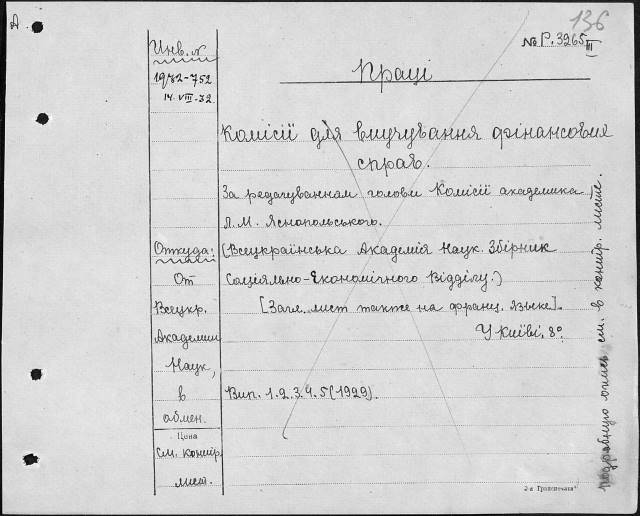 А
136
№ Р.3265/III
Инв. №
1932-752
14.VIII.32
Праці
Комісії для виучування фінансових
справ.
За редагуваннам голови Комісії академика
Л.М. Яснопольського.
Откуда:
От
Всеукр.
Академии
Наук,
в
обмен.
(Всеукраїнська Академія Наук. Збірник
Соціяльно-Економічного Відділу.)
[Загл. лист также на франц. языке].
У Київі. 8º.
Вип. 1.2.3.4.5 (1929).
Цена
См. контр.
лист.
подробную опись см. в контр. листе.
2-я Гранпечать